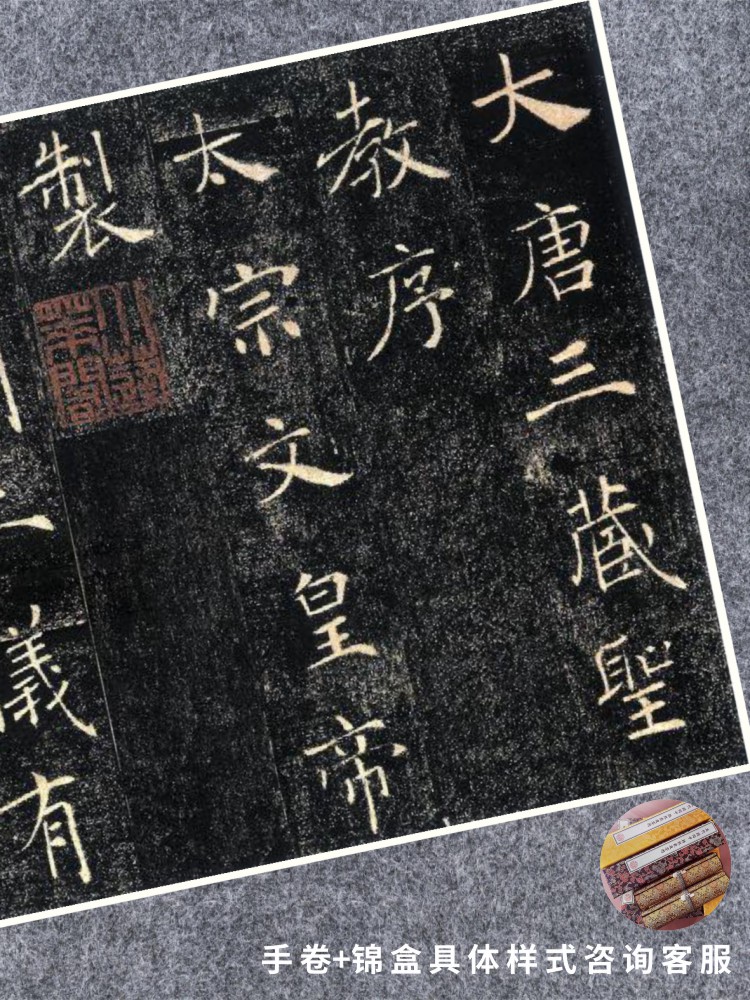 大唐三藏聖
教序
太宗文皇帝
製
小蓬萊閣
二儀有
手卷+锦盒具体样式咨询客服